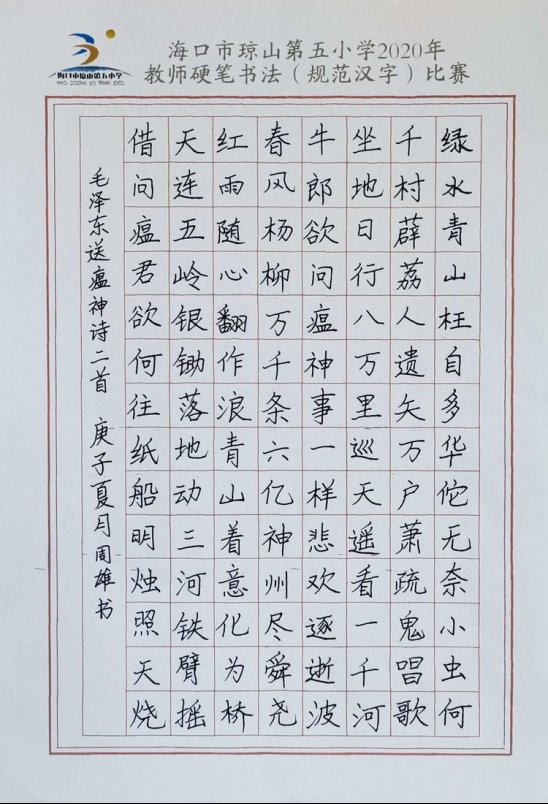 海口市琼山第五小学2020年
教师硬笔书法（规范汉字）比赛
海口市琼山第五小学
绿水青山枉自多华佗无奈小虫何
千村薜荔人遗矢万户萧疏鬼唱歌
坐地日行八万里巡天遥看一千河
牛郎欲问瘟神事一样悲欢逐逝波
春风杨柳万千条六亿神州尽舜尧
红雨随心翻作浪青山着意化为桥
天连五岭银锄落地动三河铁臂摇
借问瘟君欲何往纸船明烛照天烧
毛泽东送瘟神诗二首 庚子夏月周雄书